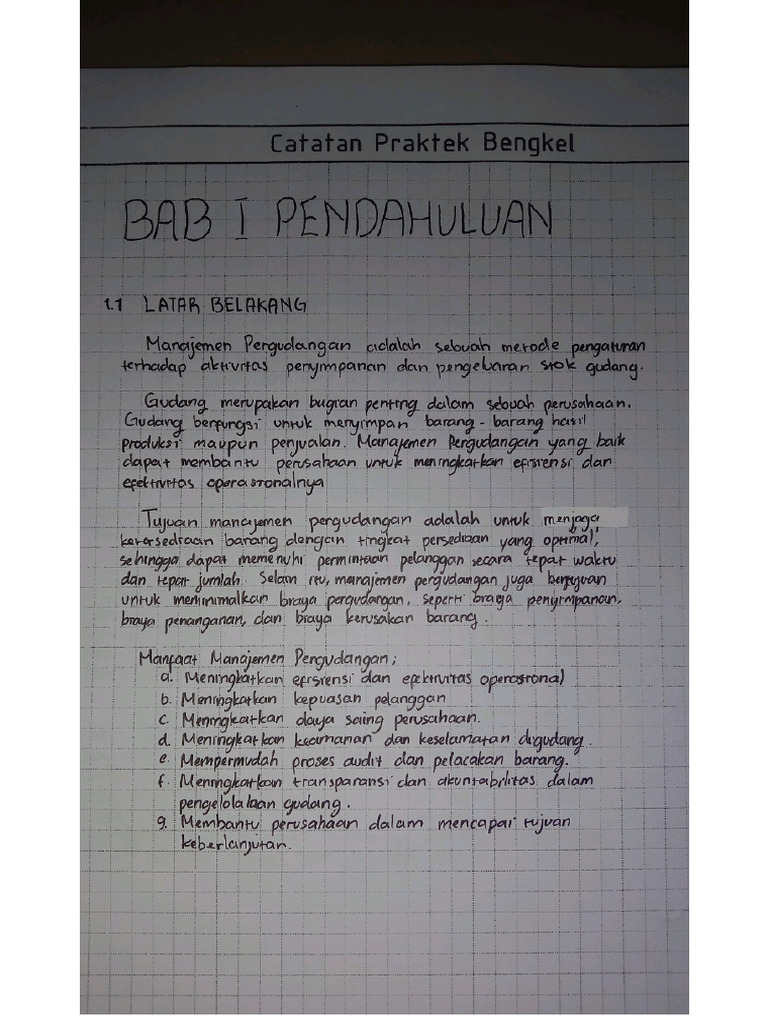 Catatan Praktek Bengkel
BAB I PENDAHULUAN
1.1 LATAR BELAKANG
Manajemen Pergudangan adalah sebuah metode pengaturan
terhadap aktivitas penyimpanan dan pengeluaran stok gudang.
Gudang merupakan bagian penting dalam sebuah perusahaan.
Gudang berfungsi untuk menyimpan barang - barang hasil
produksi maupun penjualan. Manajemen Pergudangan yang baik
dapat membantu perusahaan untuk meningkatkan efisiensi dan
efektivitas operasionalnya
Tujuan manajemen pergudangan adalah untuk menjaga
ketersediaan barang dengan tingkat persediaan yang optimal,
sehingga dapat memenuhi permintaan pelanggan secara tepat waktu
dan tepat jumlah. Selain itu, manajemen pergudangan juga bertujuan
untuk meminimalkan biaya pergudangan, seperti biaya penyimpanan,
biaya penanganan, dan biaya kerusakan barang.
Manfaat Manajemen Pergudangan;
a. Meningkatkan efisiensi dan efektivitas operasional
b. Meningkatkan kepuasan pelanggan
c. Meningkatkan daya saing perusahaan.
d. Meningkatkan keamanan dan keselamatan digudang.
e. Mempermudah proses audit dan pelacakan barang.
f. Meningkatkan transparansi dan akuntabilitas dalam
pengelolalaan gudang.
g. Membantu perusahaan dalam mencapai tujuan
keberlanjutan.